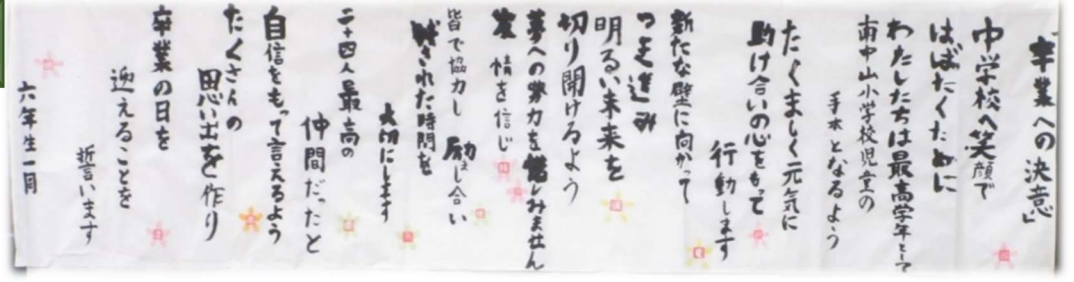 「卒業への決意」
中学校へ笑顔で
はばたくために
わたしたちは最高学年として
南中山小学校児童の
手本となるよう
たくましく元気に
助け合いの心をもって
行動します
新たな壁に向かって
つき進み
明るい未来を
切り開けるよう
夢への努力を惜しみません
友情を信じ
皆で協力し励まし合い
残された時間を
大切にします
二十四人最高の
仲間だったと
自信をもって言えるよう
たくさんの
思い出を作り
卒業の日を
迎えることを
誓います
六年生一同